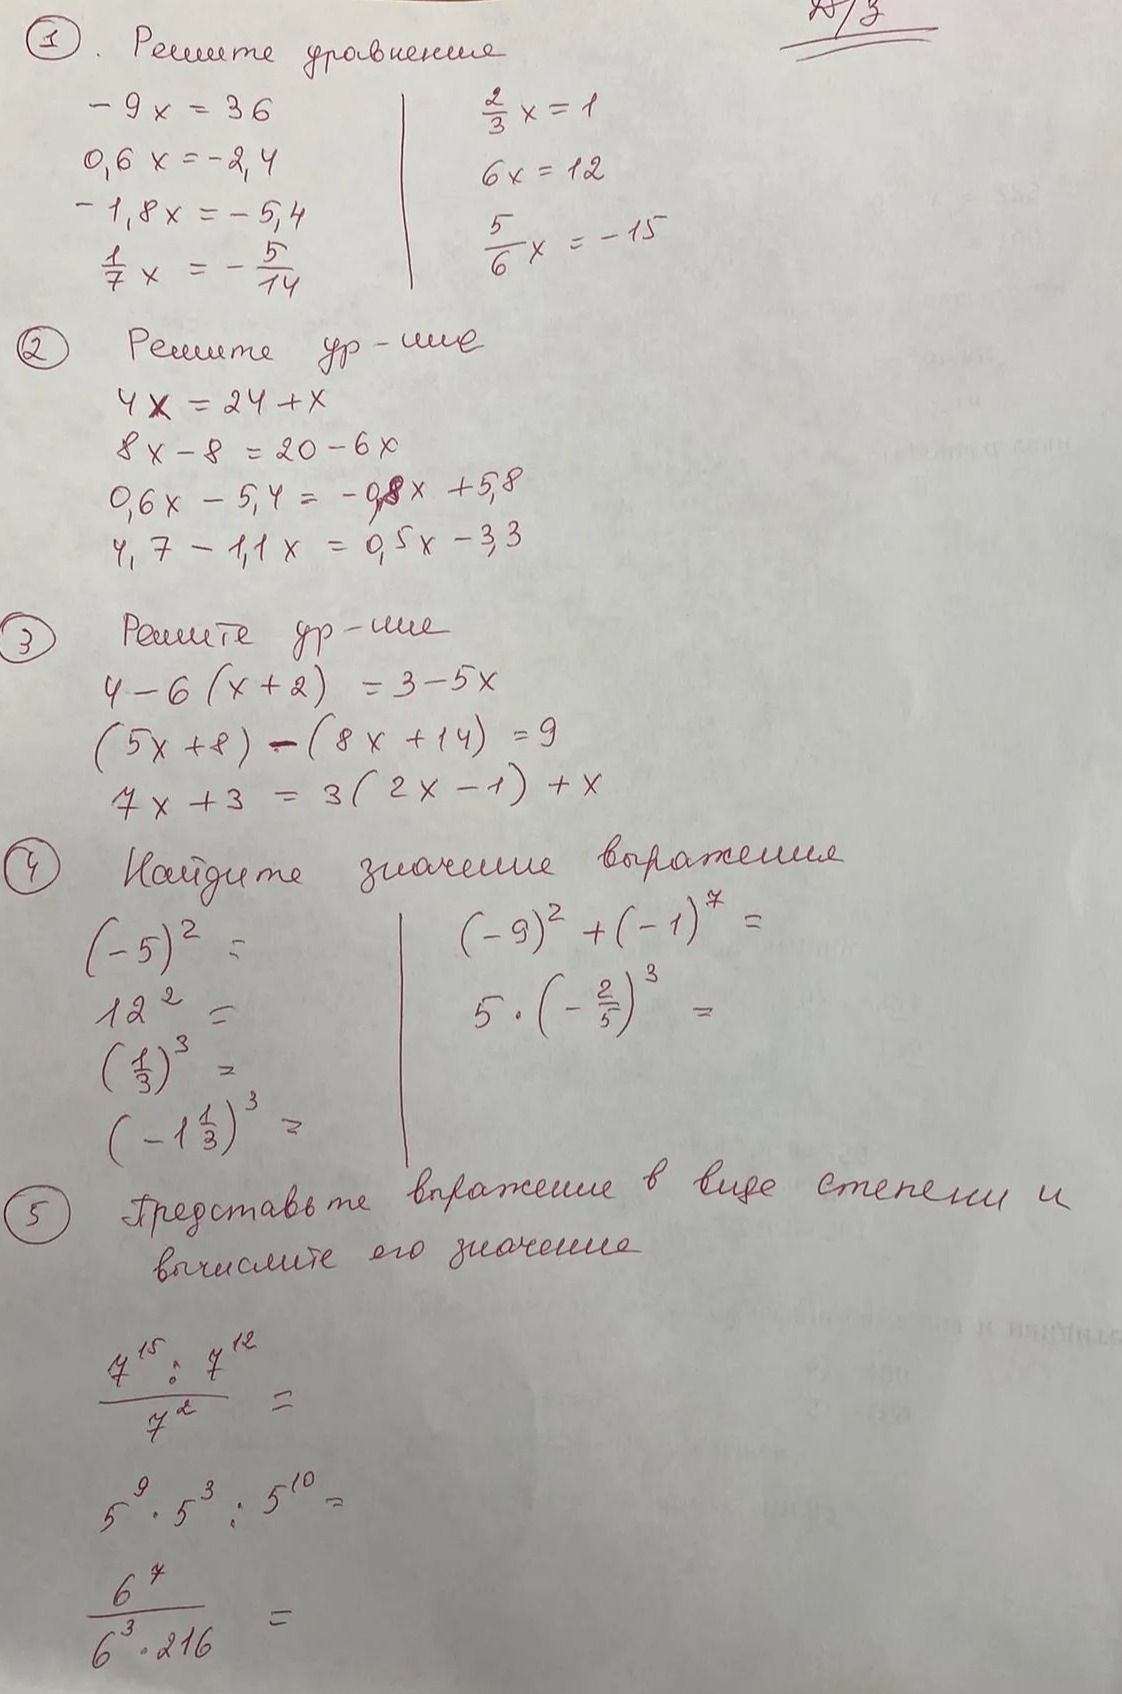 Д/З
① . Решите уравнения
- 9x = 36
0,6 x = - 2,4
- 1,8x = - 5,4
1/7 x = - 5/14
2/3 x = 1
6x = 12
5/6 x = - 15
② Решите ур-ние
4x = 24 + x
8x - 8 = 20 - 6x
0,6x - 5,4 = - 0,8x + 5,8
4,7 - 1,1x = 0,5x - 3,3
③ Решите ур-ние
4 - 6(x + 2) = 3 - 5x
(5x + 8) - (8x + 14) = 9
7x + 3 = 3(2x - 1) + x
④ Найдите значение выражения
(-5)² =
12² =
(1/3)³ =
(-1 1/3)³ =
(-9)² + (-1)⁷ =
5 · (-2/5)³ =
⑤ Представьте выражение в виде степени и
вычислите его значение
7¹⁵ : 7¹² / 7² =
5⁹ · 5³ : 5¹⁰ =
6⁷ / 6³ · 216 =